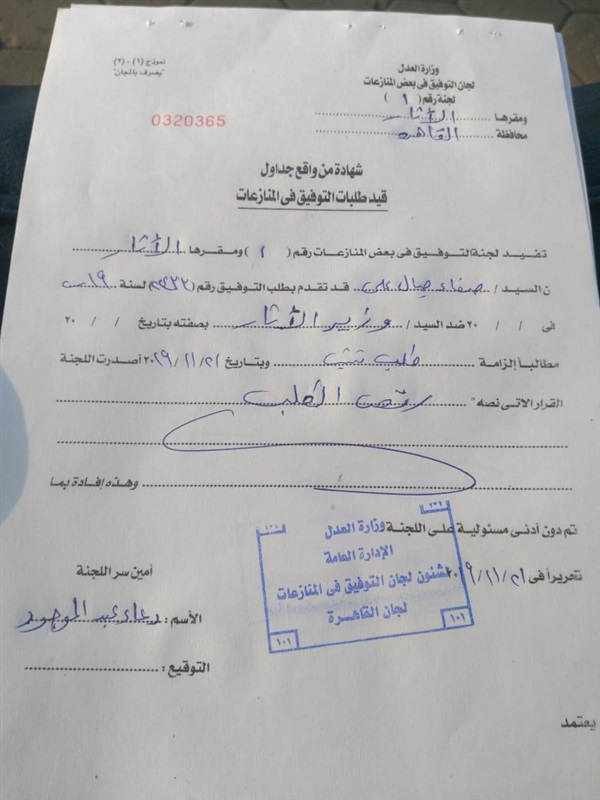 نموذج (١) - (٢)
"يصرف بالمجان"
وزارة العدل
لجان التوفيق فى بعض المنازعات
لجنة رقم ( ١ )
ومقرها الآثار
محافظة القاهرة
0320365
شهادة من واقع جداول
قيد طلبات التوفيق فى المنازعات
تفيد لجنة التوفيق فى بعض المنازعات رقم ( ١ ) ومقرها الآثار
ن السيد / صفاء على قد تقدم بطلب التوفيق رقم ( لسنة ١٩
فى / / ٢٠ ضد السيد / وزير الآثار بصفته بتاريخ / / ٢٠
مطالباً إلزامة طلب تثبيت وبتاريخ ٢٠١٩/١١/٢١ أصدرت اللجنة
القرار الاتى نصه " رفض الطلب
وهذه إفادة بما
تم دون أدنى مسئولية على اللجنة
تحريراً فى ٢٠١٩/١١/٢١
وزارة العدل
الإدارة العامة
لشئون لجان التوفيق فى المنازعات
لجان القاهرة
١٠١
١٠١
أمين سر اللجنة
الأسم : دعاء عبد الموجود
التوقيع :
يعتمد